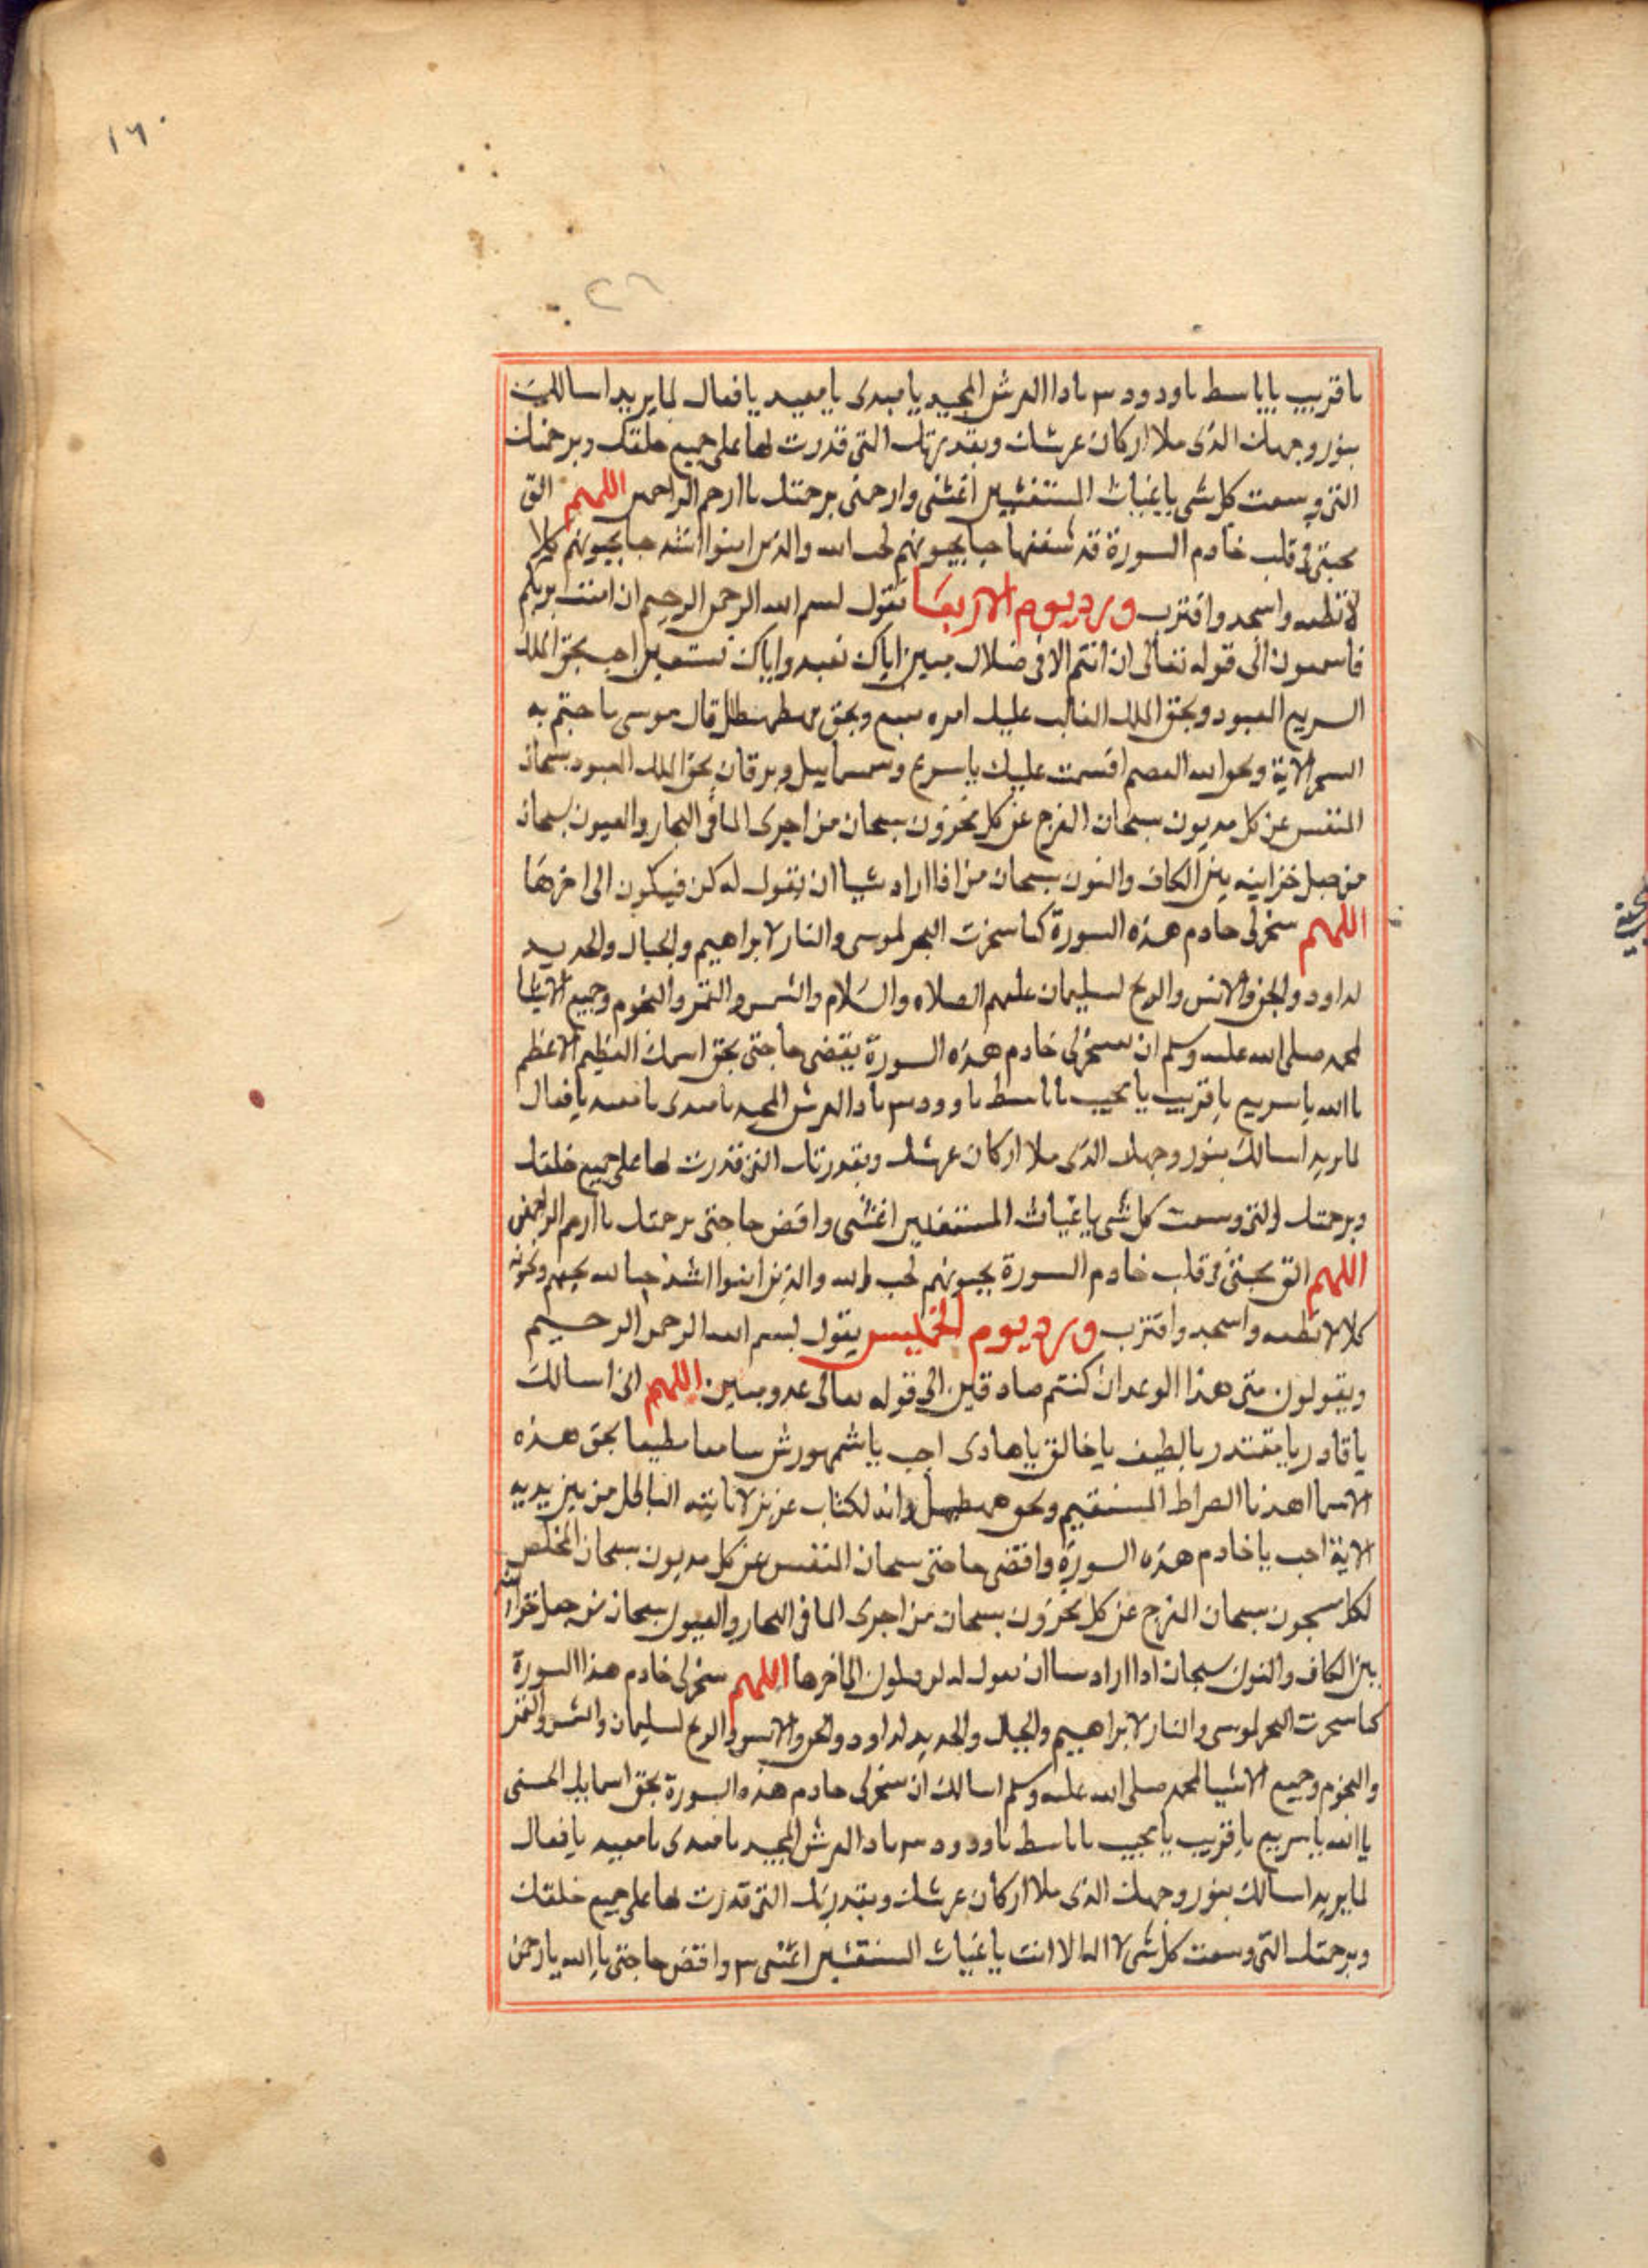 ١٦٠
٢٦
يا قريب يا باسط يا ودود ٣ يا ذا العرش المجيد يا مبدى يا معيد يا فعال لما يريد اسالك
بنور وجهك الذى ملا اركان عرشك وبقدرتك التى قدرت بها على جميع خلقك وبرحمتك
التى وسعت كل شى يا غياث المستغيثين اغثنى وارحمنى برحمتك يا ارحم الراحمين اللهم الق
محبتى فى قلب خادم السورة قد شغفها حبا يحبونهم كحب الله والذين امنوا اشد حبا يحبونهم كلا
لا تطعه واسجد واقترب ورد يوم الاربعا تقول بسم الله الرحمن الرحيم ان امنت بربكم
فاسمعون الى قوله تعالى ان انتم الا فى ضلال مبين اياك نعبد واياك نستعين اجب بحق الملك
السريع المعبود وبحق الملك الغالب عليك امره سبع وبحق قال موسى ما جئتم به
السحر الاية ويحق الله العصم اقسمت عليك يا سريع وسمسماييل وبرقان بحق الملك المعبود سبحان
المنفس عن كل مديون سبحان المفرج عن كل محزون سبحان من اجرى الما فى البحار والعيون سبحان
من جعل خزاينه بين الكاف والنون سبحان من اذا اراد شيا ان يقول له كن فيكون الى اخرها
اللهم سخر لى خادم هذه السورة كما سخرت البحر لموسى والنار لابراهيم والجبال والحديد
لداود والجن والانس والريح لسليمان عليهم الصلاه والسلام والشمس والقمر والنجوم وجميع الاشيا
لمحمد صلى الله عليه وسلم ان تسخر لى خادم هذه السورة يقضى حاجتى بحق اسمك العظيم الاعظم
يا الله يا سريع يا قريب يا مجيب يا باسط يا ودود ٣ يا ذا العرش المجيد يا مبدى يا معيد يا فعال
لما يريد اسالك بنور وجهك الذى ملا اركان عرشك وبقدرتك التى قدرت بها على جميع خلقك
وبرحمتك التى وسعت كل شى يا غياث المستغيثين اغثنى واقض حاجتى برحمتك يا ارحم الراحمين
اللهم الق محبتى فى قلب خادم السورة يحبونهم كحب الله والذين امنوا اشد حبا لله يحبهم ويحبونه
كلا لا تطعه واسجد واقترب ورد يوم الخميس يقول بسم الله الرحمن الرحيم
ويقولون متى هذا الوعد ان كنتم صادقين الى قوله تعالى عدو مبين اللهم انى اسالك
يا قادر يا مقتدر يا لطيف يا خالق يا هادى اجب يا شمهورش سامعا مطيعا بحق هذه
الاسما اهدنا الصراط المستقيم وبحق وانه لكتاب عزيز لا ياتيه الباطل من بين يديه
الاية اجب يا خادم هذه السورة واقضى حاجتى سبحان المنفس عن كل مديون سبحان المخلص
لكل مسجون سبحان المفرج عن كل محزون سبحان من اجرى الما فى البحار والعيون سبحان من جعل خزاينه
بين الكاف والنون سبحان اذا اراد شيا ان يقول له كن فيكون الى اخرها اللهم سخر لى خادم هذا السورة
كما سخرت البحر لموسى والنار لابراهيم والجبال والحديد لداود والجن والانس والريح لسليمان والشمس والقمر
والنجوم وجميع الاشيا لمحمد صلى الله عليه وسلم اسالك ان تسخر لى خادم هذه السورة بحق اسمايك الحسنى
يا الله يا سريع يا قريب يا مجيب يا باسط يا ودود ٣ يا ذا العرش المجيد يا مبدى يا معيد يا فعال
لما يريد اسالك بنور وجهك الذى ملا اركان عرشك وبقدرتك التى قدرت بها على جميع خلقك
وبرحمتك التى وسعت كل شى لا اله الا انت يا غياث المستغيثين اغثنى ٣ واقض حاجتى يا الله يا رحمن